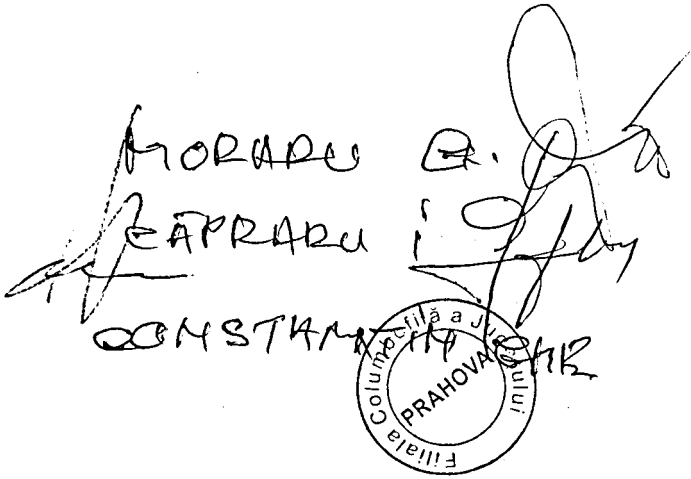 MORARU G.
CĂPRARU I
CONSTANTIN CHR
Filiala Columbofilă a Județului
PRAHOVA